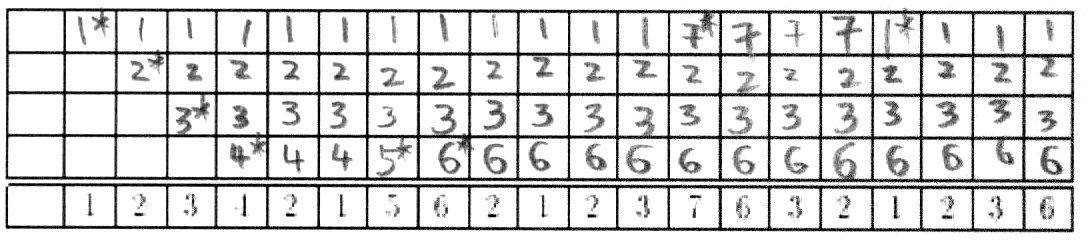 1* 1 1 1 1 1 1 1 1 1 1 1 7* 7 7 7 1* 1 1 1
2* 2 2 2 2 2 2 2 2 2 2 2 2 2 2 2 2 2 2
3* 3 3 3 3 3 3 3 3 3 3 3 3 3 3 3 3 3
4* 4 4 5* 6* 6 6 6 6 6 6 6 6 6 6 6 6
1 2 3 4 2 1 5 6 2 1 2 3 7 6 3 2 1 2 3 6